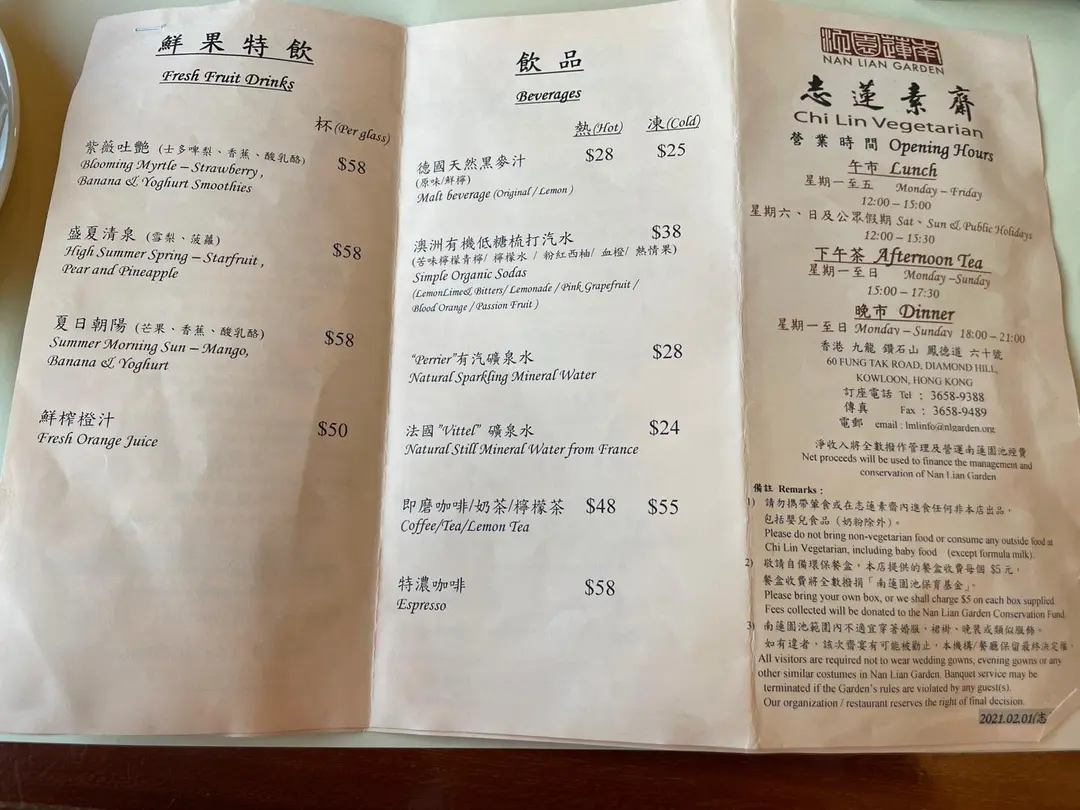 鮮果特飲
Fresh Fruit Drinks
杯 (Per glass)
紫薇吐艷 (士多啤梨、香蕉、酸乳酪) $58
Blooming Myrtle – Strawberry,
Banana & Yoghurt Smoothies
盛夏清泉 (雪梨、菠蘿) $58
High Summer Spring – Starfruit,
Pear and Pineapple
夏日朝陽 (芒果、香蕉、酸乳酪) $58
Summer Morning Sun – Mango,
Banana & Yoghurt
鮮榨橙汁 $50
Fresh Orange Juice
飲品
Beverages
熱 (Hot) 凍 (Cold)
德國天然黑麥汁 $28 $25
(原味/鮮檸)
Malt beverage (Original / Lemon )
澳洲有機低糖梳打汽水 $38
(苦味檸檬青檸/ 檸檬水 / 粉紅西柚/ 血橙/ 熱情果)
Simple Organic Sodas
(LemonLime& Bitters/ Lemonade / Pink Grapefruit /
Blood Orange / Passion Fruit )
“Perrier”有汽礦泉水 $28
Natural Sparkling Mineral Water
法國”Vittel” 礦泉水 $24
Natural Still Mineral Water from France
即磨咖啡/奶茶/檸檬茶 $48 $55
Coffee/Tea/Lemon Tea
特濃咖啡 $58
Espresso
南蓮園池
NAN LIAN GARDEN
志蓮素齋
Chi Lin Vegetarian
營業時間 Opening Hours
午市 Lunch
星期一至五 Monday – Friday
12:00 – 15:00
星期六、日及公眾假期 Sat、Sun & Public Holidays
12:00 – 15:30
下午茶 Afternoon Tea
星期一至日 Monday –Sunday
15:00 – 17:30
晚市 Dinner
星期一至日 Monday – Sunday 18:00 – 21:00
香港 九龍 鑽石山 鳳德道 六十號
60 FUNG TAK ROAD, DIAMOND HILL,
KOWLOON, HONG KONG
訂座電話 Tel : 3658-9388
傳真 Fax : 3658-9489
電郵 email : lmlinfo@nlgarden.org
淨收入將全數撥作管理及營運南蓮園池經費
Net proceeds will be used to finance the management and
conservation of Nan Lian Garden
備註 Remarks :
1) 請勿攜帶葷食或在志蓮素齋內進食任何非本店出品,
包括嬰兒食品 (奶粉除外)。
Please do not bring non-vegetarian food or consume any outside food at
Chi Lin Vegetarian, including baby food (except formula milk).
2) 敬請自備環保餐盒,本店提供的餐盒收費每個 $5 元,
餐盒收費將全數撥捐「南蓮園池保育基金」。
Please bring your own box, or we shall charge $5 on each box supplied.
Fees collected will be donated to the Nan Lian Garden Conservation Fund.
3) 南蓮園池範圍內不適宜穿著婚服、裙褂、晚裝或類似服飾。
如有違者,該次齋宴有可能被勸止,本機構/餐廳保留最終決定權。
All visitors are required not to wear wedding gowns, evening gowns or any
other similar costumes in Nan Lian Garden. Banquet service may be
terminated if the Garden's rules are violated by any guest(s).
Our organization / restaurant reserves the right of final decision.
2021.02.01(志